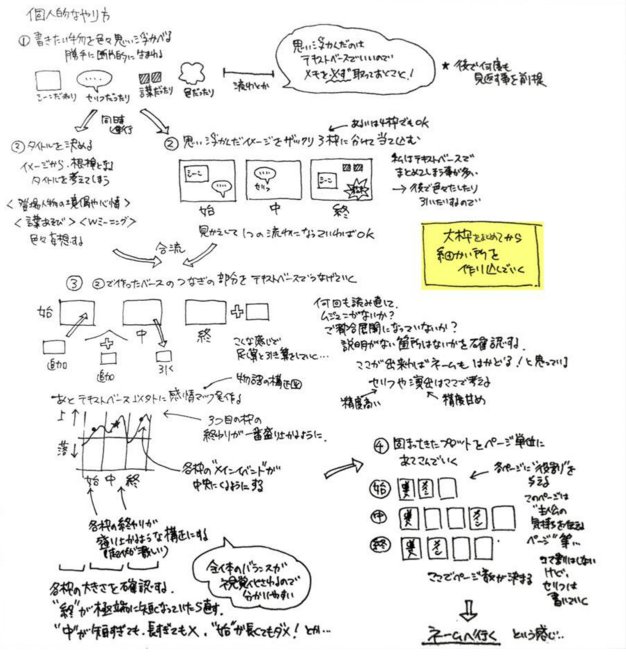 個人的なやり方
① 書きたい物を色々思い浮かべる
勝手に断片的に生まれる
シーンだったり
セリフだったり
言葉だったり
色だったり
流れとか
思い浮かんだのは
テキストベースでいいので
メモを必ず取っておくこと!
★ 後で何度も
見返す事を前提
同時進行
② タイトルを決める
イメージから、根幹となる
タイトルを考えてしまう
<登場人物の境偶や心情>
<言葉あそび> <Wミーニング>
色々妄想する
② 思い浮かんだイメージをザックリ3枠に分けて当て込む
あるいは4枠でもOK
シーン
セリフ
始 中 終
見かえして1つの流れになっていればOK
私はテキストベースで
まとめてしまう事が多い
→ 後で色々たしたり
引いたりするので
合流
大枠をまとめてから
細かい所を
作り込んでいく
③ ②で作ったベースのつなぎの部分をテキストベースでうめていく
始 中 終
追加
追加
引く
こんな感じで
足算と引き算をしていく…
何回も読み直して、
ムジュンがないか?
ご都合展開になっていないか?
説明がない箇所はないかを確認する
ここが出来ればネームもはかどる!と思っている
セリフや演出はここで考える
精度高い
精度甘め
あとテキストベース以外に感情マップを作る
物語の構造図
上↑
落↓
始 中 終
3つ目の枠の
終わりが一番盛り上がるように、
各枠の"メインイベント"が
中央にくるようにする
各枠の終わりが
盛り上がるような構造にする
各枠の大きさを確認する。
"終"が極端に短くなっていたら直す。
"中"が短すぎても、長すぎても×、"始"が長くてもダメ!とか…
全体のバランスが
視覚化されるので
分かりやすい
④ 固まってきたプロットをページ単位に
あてこんでいく
始
中
終
各ページに"役割"を
与える
このページは
"主人公の
気持ちを伝える
ページ"等…
コマ割りはしない
けど、
セリフは
書いていく
ここでページ数が決まる
ネームへ行く という感じ…